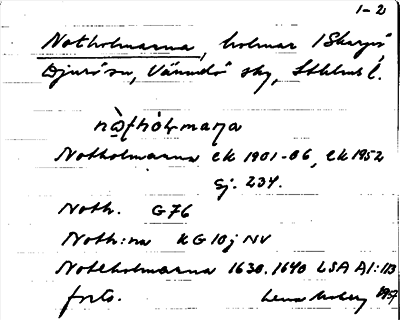 1-2
Notholmarna, holmar i Skarpö
Djurö sn, Värmdö sky, Sthlms l.
nò̱thólmaṛna
Notholmarna ek 1901-06, ek 1952
sj. 234.
Noth. G76
Noth:na KG 10j NV
Noteholmarna 1630.1640 LSA A1:113
forts. 1957